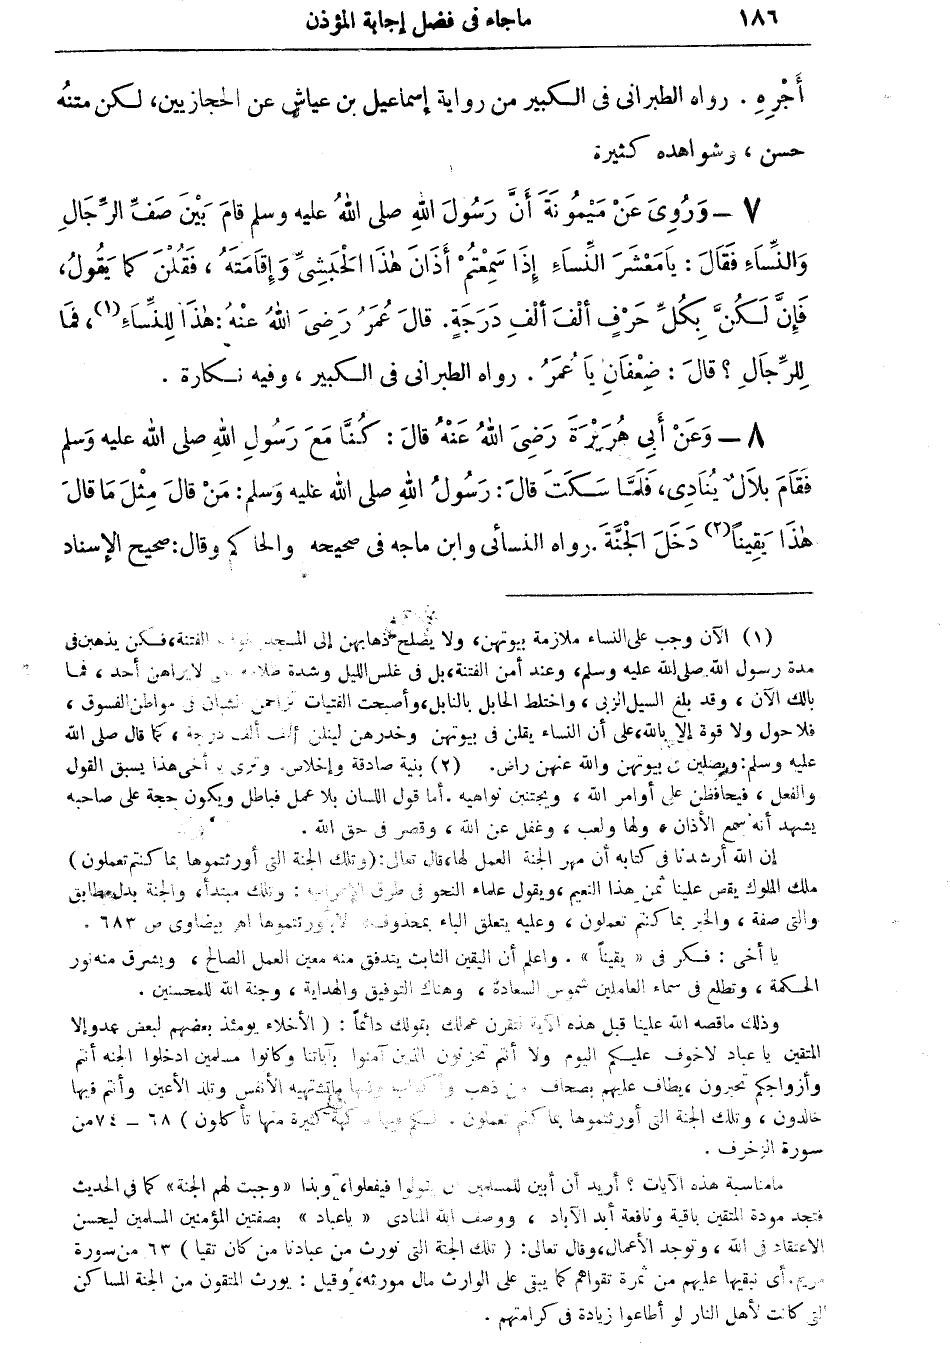 ١٨٦
ماجاء فى فضل إجابة المؤذن
أَجْرِهِ . رواه الطبرانى فى الكبير من رواية إسماعيل بن عياش عن الحجازيين، لكن متنهُ
حسن ، وشواهده كثيرة
٧ – وَرُوِىَ عَنْ مَيْمُونَةَ أَنَّ رَسُولَ اللهِ صلى اللهُ عليه وسلم قامَ بَيْنَ صَفِّ الرِّجَالِ
وَالنِّسَاءِ فَقَالَ : يَامَعْشَرَ النِّسَاءِ إِذَا سَمِعْتُمْ أَذَانَ هٰذَا الْحَبَشِىِّ وَإِقَامَتَهُ ، فَقُلْنَ كَمَا يَقُولُ،
فَإِنَّ لَكُنَّ بِكُلِّ حَرْفٍ أَلْفَ أَلْفِ دَرَجَةٍ. قالَ عُمَرُ رَضِىَ اللهُ عَنْهُ : هٰذَا لِلنِّسَاءِ (١)، فَمَا
لِلرِّجَالِ ؟ قالَ : ضِعْفَانِ يَا عُمَرُ . رواه الطبرانى فى الكبير ، وفيه نكارة .
٨ – وَعَنْ أَبِى هُرَيْرَةَ رَضِىَ اللهُ عَنْهُ قالَ : كُنَّا مَعَ رَسُولِ اللهِ صلى الله عليه وَسلم
فَقَامَ بِلاَلٌ يُنَادِى، فَلَمَّا سَكَتَ قالَ : رَسُولُ اللهِ صلى الله عليه وَسلم : مَنْ قالَ مِثْلَ مَا قالَ
هٰذَا يَقِيناً (٢) دَخَلَ الْجَنَّةَ . رواه النسائى وابن ماجه فى صحيحه والحاكم وقال : صحيح الإسناد
(١) الآن وجب على النساء ملازمة بيوتهن، ولا يصلح ذهابهن إلى المسجد خوف الفتنة، فكن يذهبن فى
مدة رسول الله صلى الله عليه وسلم، وعند أمن الفتنة، بل فى غلس الليل وشدة لايراهن أحد ، فما
بالك الآن ، وقد بلغ السيل الزبى ، واختلط الحابل بالنابل، وأصبحت الفتيات تزاحمن الشبان فى مواطن الفسوق ،
فلاحول ولا قوة إلا بالله، على أن النساء يقلن فى بيوتهن وخدرهن لينلن ألف ألف درجة ، كما قال صلى الله
عليه وسلم : ويصلين فى بيوتهن والله عنهن راض. (٢) بنية صادقة وإخلاص. وترى يا أخى هذا يسبق القول
والفعل ، فيحافظن على أوامر الله ، ويجتنبن نواهيه . أما قول اللسان بلا عمل فباطل ويكون حجة على صاحبه
يشهد أنه سمع الأذان ، ولها ولعب ، وغفل عن الله ، وقصر فى حق الله .
إن الله أرشدنا فى كتابه أن مهر الجنة العمل لها، قال تعالى : (وتلك الجنة التى أورثتموها بما كنتم تعملون )
ملك الملوك يقص علينا ثمن هذا النعيم ، ويقول علماء النحو فى طرق الإعراب : وتلك مبتدأ، والجنة بدل مطابق
والتى صفة ، والخبر بما كنتم تعملون ، وعليه يتعلق الباء بمحذوف، لا بأورثتموها اهـ بيضاوى ص ٦٨٣ .
يا أخى : فكر فى « يقيناً » . واعلم أن اليقين الثابت يتدفق منه معين العمل الصالح ، ويشرق منه نور
الحكمة ، وتطلع فى سماء العاملين شموس السعادة ، وهناك التوفيق والهداية ، وجنة الله للمحسنين .
وذلك ماقصه الله علينا قبل هذه الآية لتقرن عملك بقولك دائماً : ( الأخلاء يومئذ بعضهم لبعض عدو إلا
المتقين ياعباد لاخوف عليكم اليوم ولا أنتم تحزنون الذين آمنوا بآياتنا وكانوا مسلمين ادخلوا الجنة أنتم
وأزواجكم تحبرون ، يطاف عليهم بصحاف من ذهب وأكواب وفيها ماتشتهيه الأنفس وتلذ الأعين وأنتم فيها
خالدون ، وتلك الجنة التى أورثتموها بما كنتم تعملون . لكم فيها فاكهة كثيرة منها تأكلون ) ٦٨ – ٧٤ من
سورة الزخرف .
مامناسبة هذه الآيات ؟ أريد أن أبين للمسلمين أن يقولوا فيفعلوا، وبذا « وجبت لهم الجنة » كما فى الحديث
فتجد مودة المتقين باقية ونافعة أبد الآباد ، ووصف الله المنادى « ياعباد » بصفتين المؤمنين المسلمين ليحسن
الاعتقاد فى الله ، وتوجد الأعمال، وقال تعالى : ( تلك الجنة التى نورث من عبادنا من كان تقيا ) ٦٣ من سورة
مريم. أى نبقيها عليهم من ثمرة تقواهم كما يبقى على الوارث مال مورثه، وقيل : يورث المتقون من الجنة المساكن
التى كانت لأهل النار لو أطاعوا زيادة فى كرامتهم .